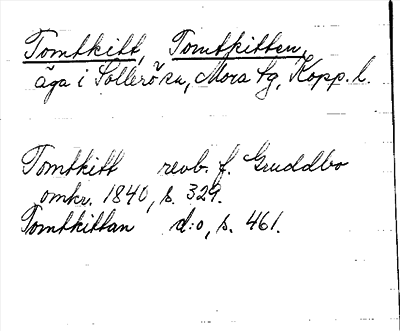 Tomtkitt, Tomtkitten,
äga i Sollerö sn, Mora tg, Kopp. l.
Tomtkitt revb. f. Gruddbo
omkr. 1840, s. 329.
Tomtkittan d:o, s. 461.